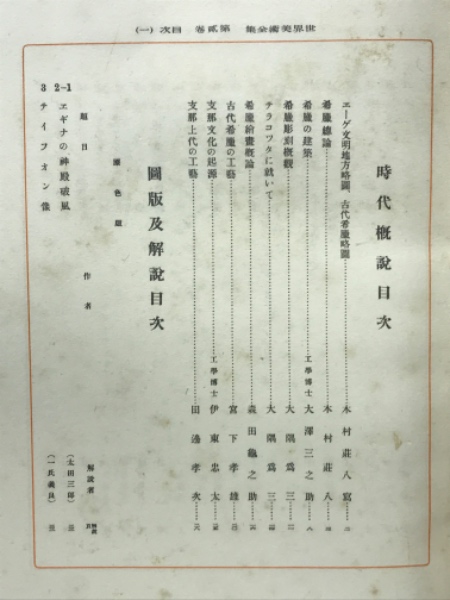 世界美術全集 第貳卷 目次 (一)
時代概說目次
エーゲ文明地方略圖、古代希臘略圖 木村莊八寫
希臘總論 木村莊八
希臘の建築 工學博士 大澤三之助
希臘彫刻概觀 大隅爲三
テラコツタに就いて 大隅爲三
希臘繪畫概論 森田龜之助
古代希臘の工藝 宮下孝雄
支那文化の起源 工學博士 伊東忠太
支那上代の工藝 田邊孝次
圖版及解說目次
原色版
題目 作者 解說者
2-1 エギナの神殿破風 (太田三郎)
3 テイフオン像 (一氏義良)